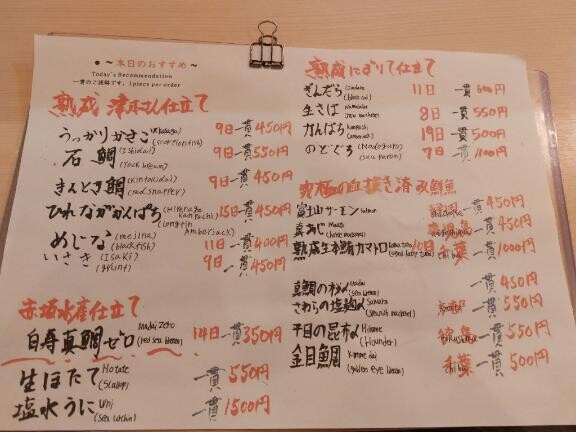 ～本日のおすすめ～
Today's Recommendation
一貫のご提供です。1piece per order
熟成 津本さん仕立て
うっかりかさご (scorpionfish) 9日 一貫 450円
石鯛 (Ishidai) (rock bream) 9日 一貫 550円
きんとき鯛 (kintokidai) (red snapper) 9日 一貫 450円
ひれながかんぱち (Hirenaga Kanpachi) (Longfin Amberjack) 15日 一貫 450円
めじな (mejina) (blackfish) 11日 一貫 400円
いさき (Isaki) (grunt) 9日 一貫 450円
赤坂水産仕立て
白寿真鯛ゼロ Madai Zero (red sea bream) 14日 一貫 350円
生ほたて Hotate (Scallop) 一貫 550円
塩水うに Uni (Sea urchin) 一貫 1500円
熟成にぎりて仕立て
ぎんだら (black cod) 11日 一貫 600円
生さば 8日 一貫 550円
かんぱち (Kanpachi) (amberjack) 19日 一貫 500円
のどぐろ (Nodoguro) (sea perch) 7日 一貫 1100円
究極の血抜き済み鮮魚
富士山サーモン salmon 静岡 一貫 450円
真あじ Maaji (horse mackerel) 鹿児島 一貫 450円
熟成生本鯛カマトロ 10日 千葉 一貫 1000円
真鯛の Madai (sea bream) 一貫 450円
さわらの塩麹〆 Sawara 京都 一貫 550円
平目の昆布〆 Hirame (flounder) 一貫 550円
金目鯛 Kinme dai (golden eye bream) 千葉 chiba 一貫 500円